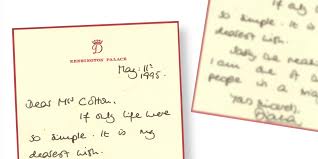 D
KENSINGTON PALACE
May. 11th
1995.
Dear Cotton,
If only life were
so simple. It is my
dearest wish.
so simple. It is
dearest wish.
Sadly the
I am it
people in a
Yours sincerely,
Diana